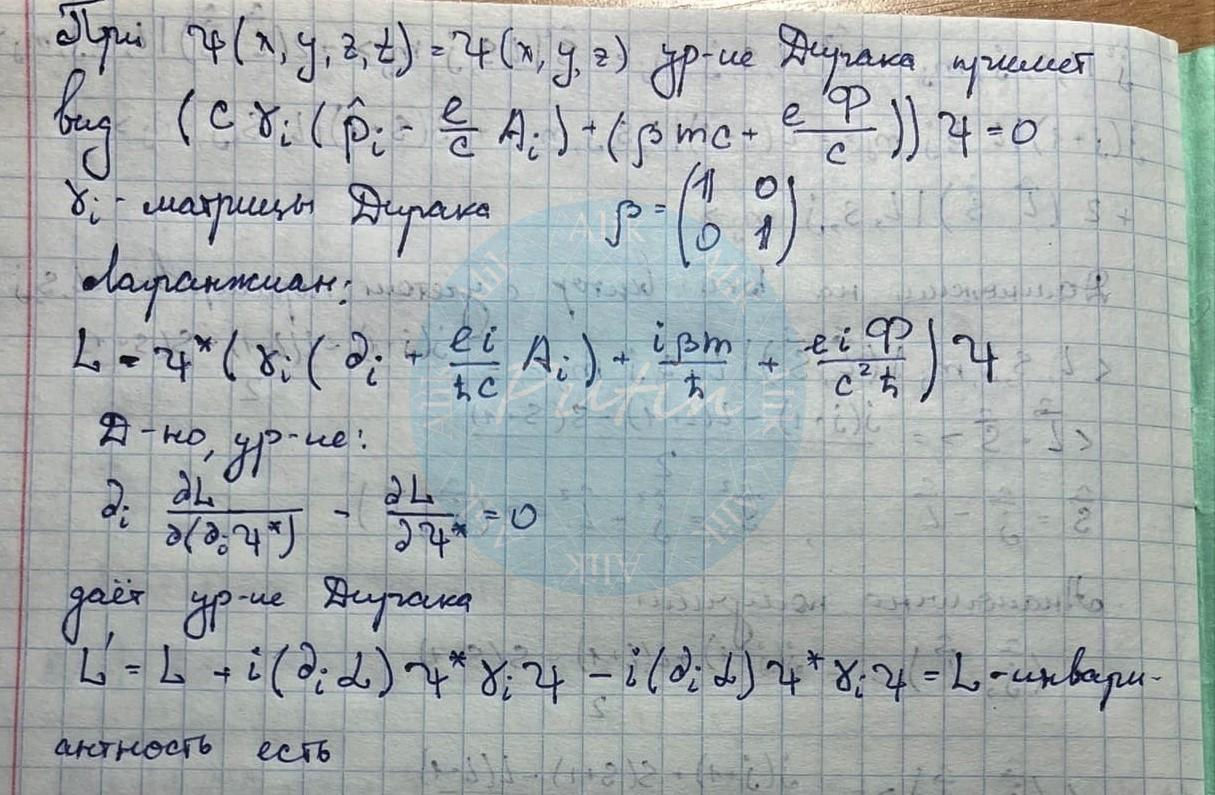 При ψ(x, y, z, t) = ψ(x, y, z) ур-ие Дирака примет
вид (c γᵢ (p̂ᵢ - e/c Aᵢ) + (β mc + eФ/c)) ψ = 0
γᵢ - матрицы Дирака β = (1 0; 0 1)
Лагранжиан:
L = ψ* (γᵢ (∂ᵢ + ei/ħc Aᵢ) + iβm/ħ + eiФ/c²ħ) ψ
Д-но, ур-ие:
∂ᵢ ∂L/∂(∂ᵢψ*) - ∂L/∂ψ* = 0
даёт ур-ие Дирака
L' = L + i(∂ᵢα) ψ* γᵢ ψ - i(∂ᵢα) ψ* γᵢ ψ = L - инвари-
антность есть
Putin
АЦК